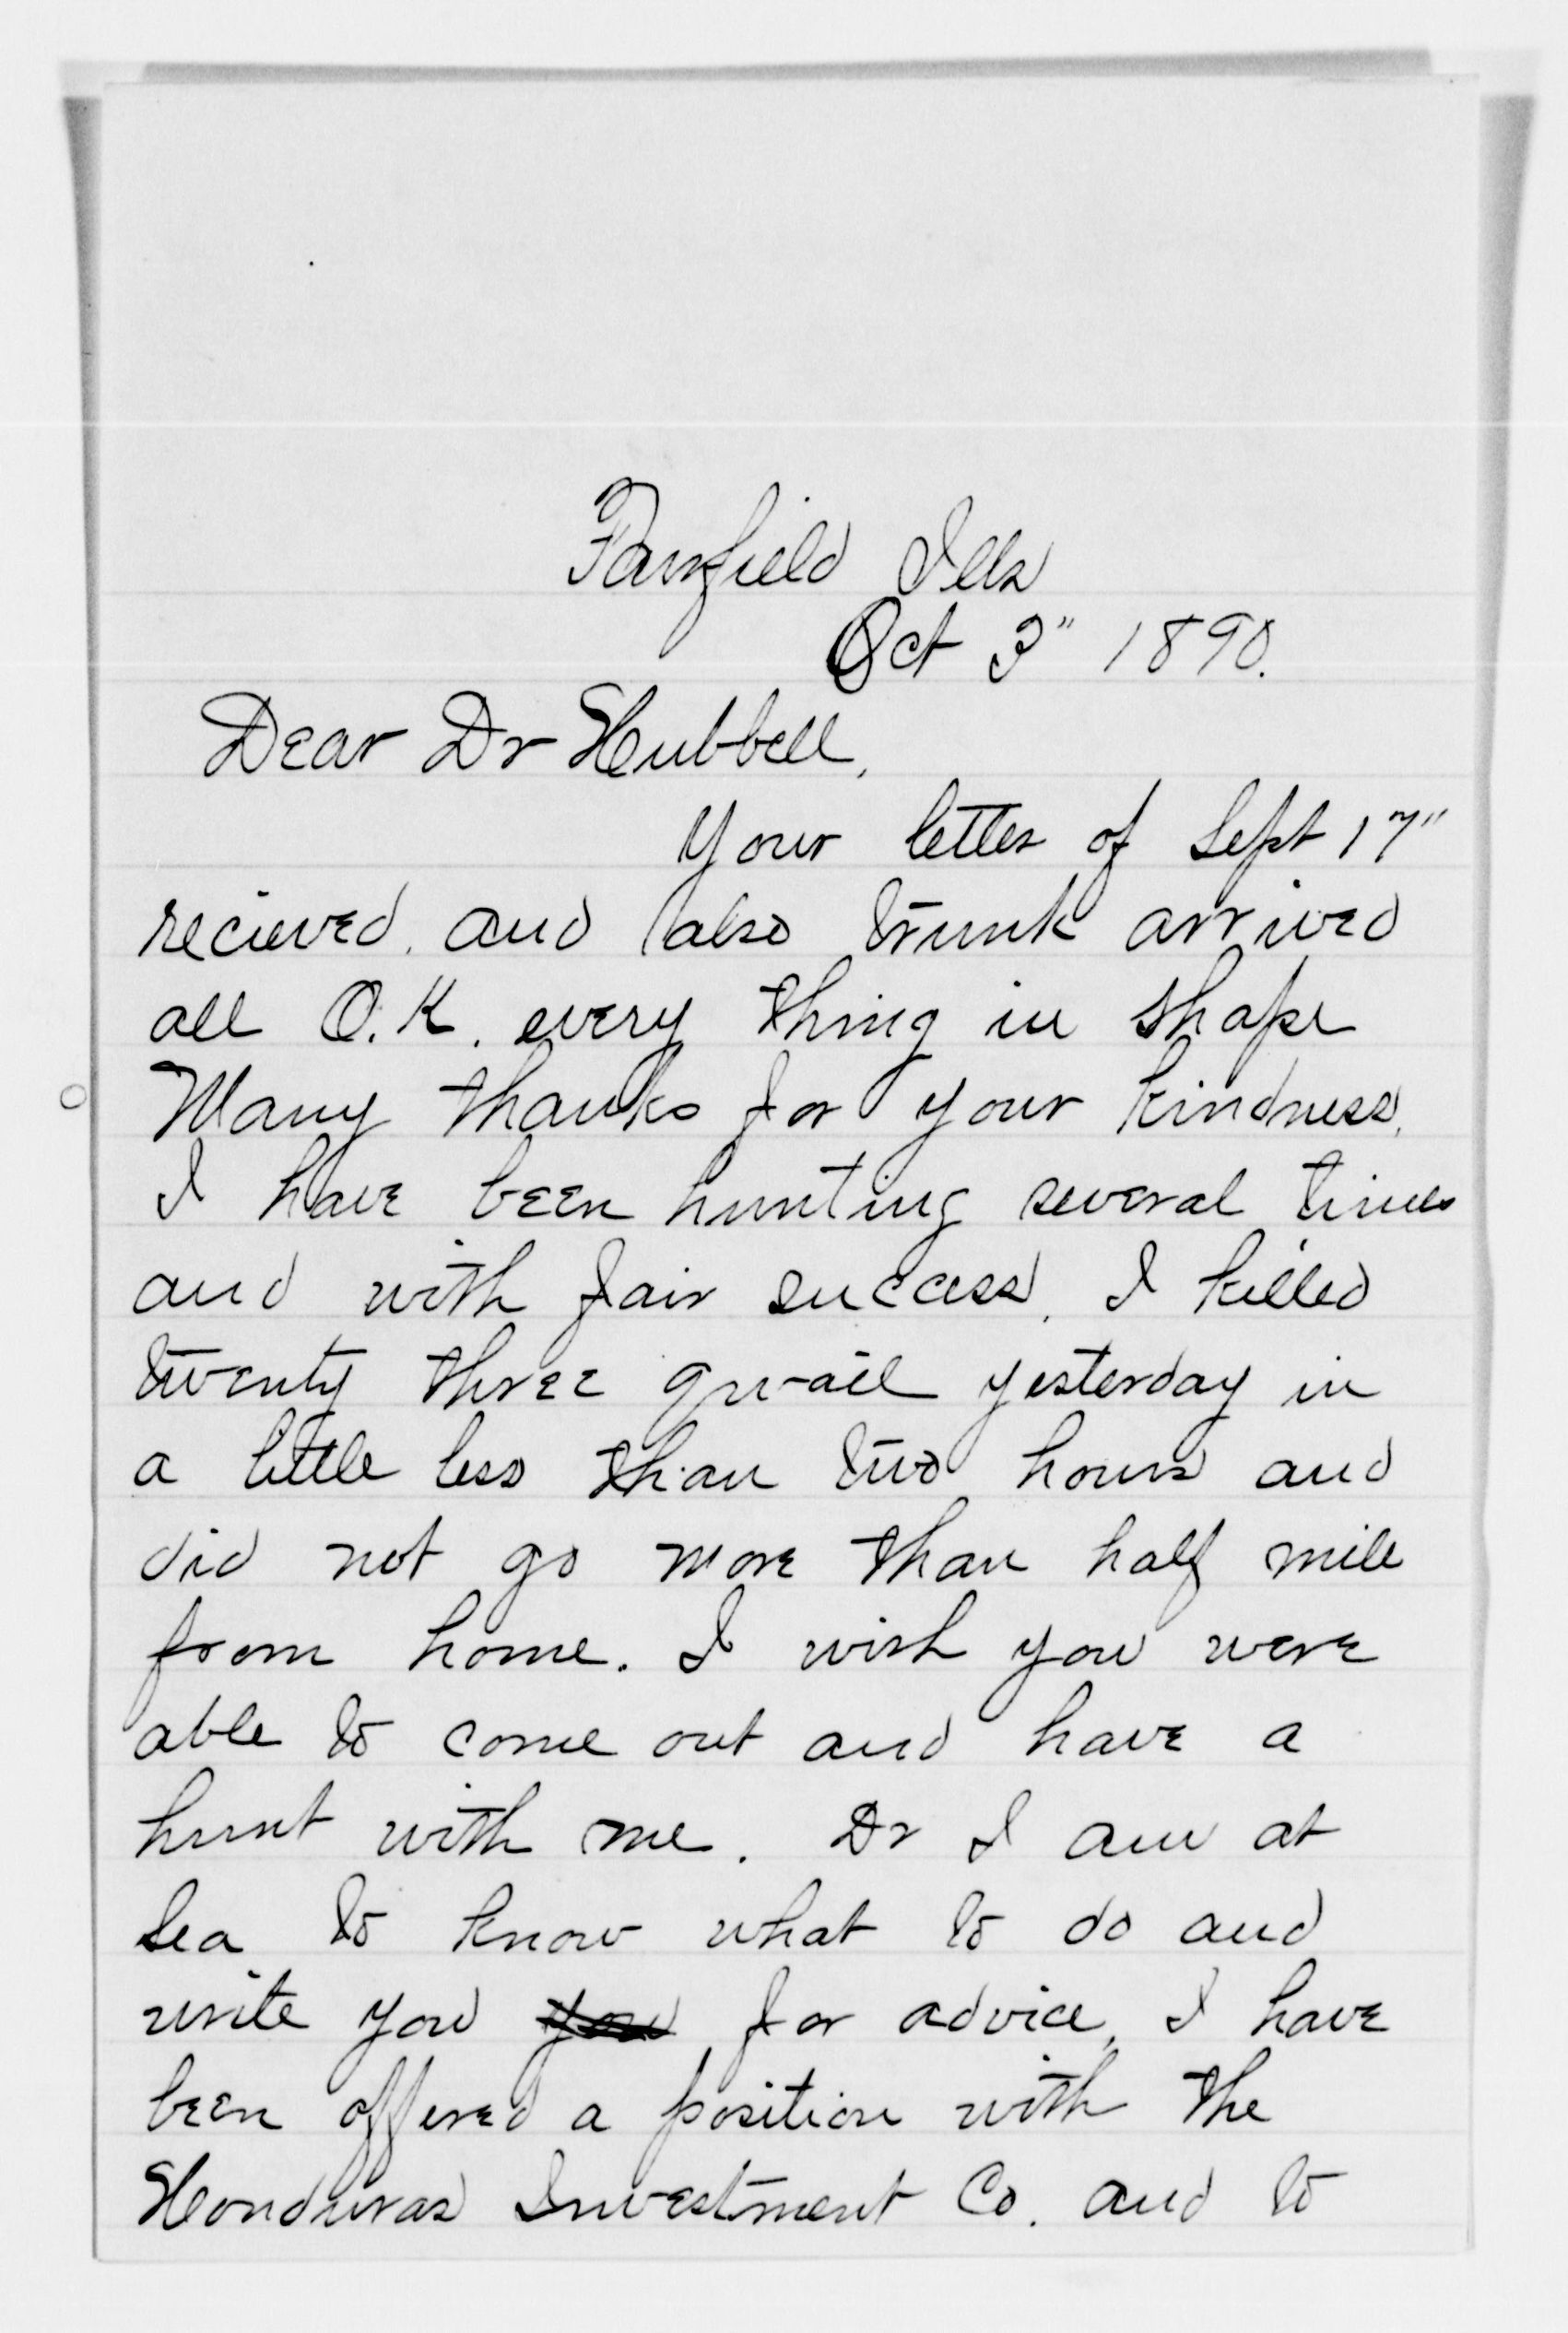 Fairfield Ills
Oct 3" 1890.
Dear Dr Hubbell,
Your letter of Sept 17"
recieved. and also trunk arrived
all O.K. every thing in shape
Many thanks for your kindness.
I have been hunting several times
and with fair success. I killed
twenty three quail yesterday in
a little less than two hours and
did not go more than half mile
from home. I wish you were
able to come out and have a
hunt with me. Dr I am at
Sea to know what to do and
write you you for advice, I have
been offered a position with the
Honduras Investment Co. and to